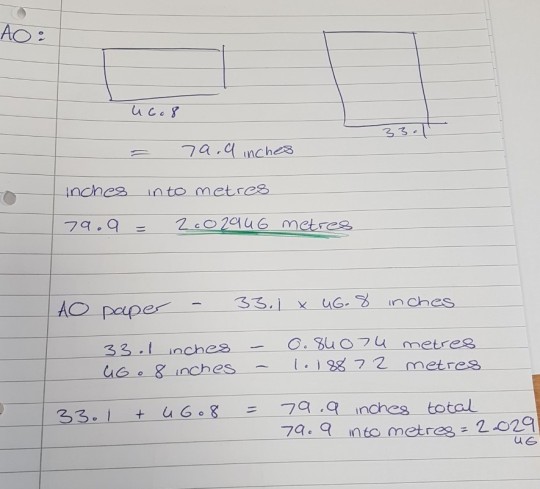 AO:
46.8
33.1
= 79.9 inches
inches into metres
79.9 = 2.02946 metres
AO paper - 33.1 x 46.8 inches
33.1 inches - 0.84074 metres
46.8 inches - 1.18872 metres
33.1 + 46.8 = 79.9 inches total
79.9 into metres = 2.029
46